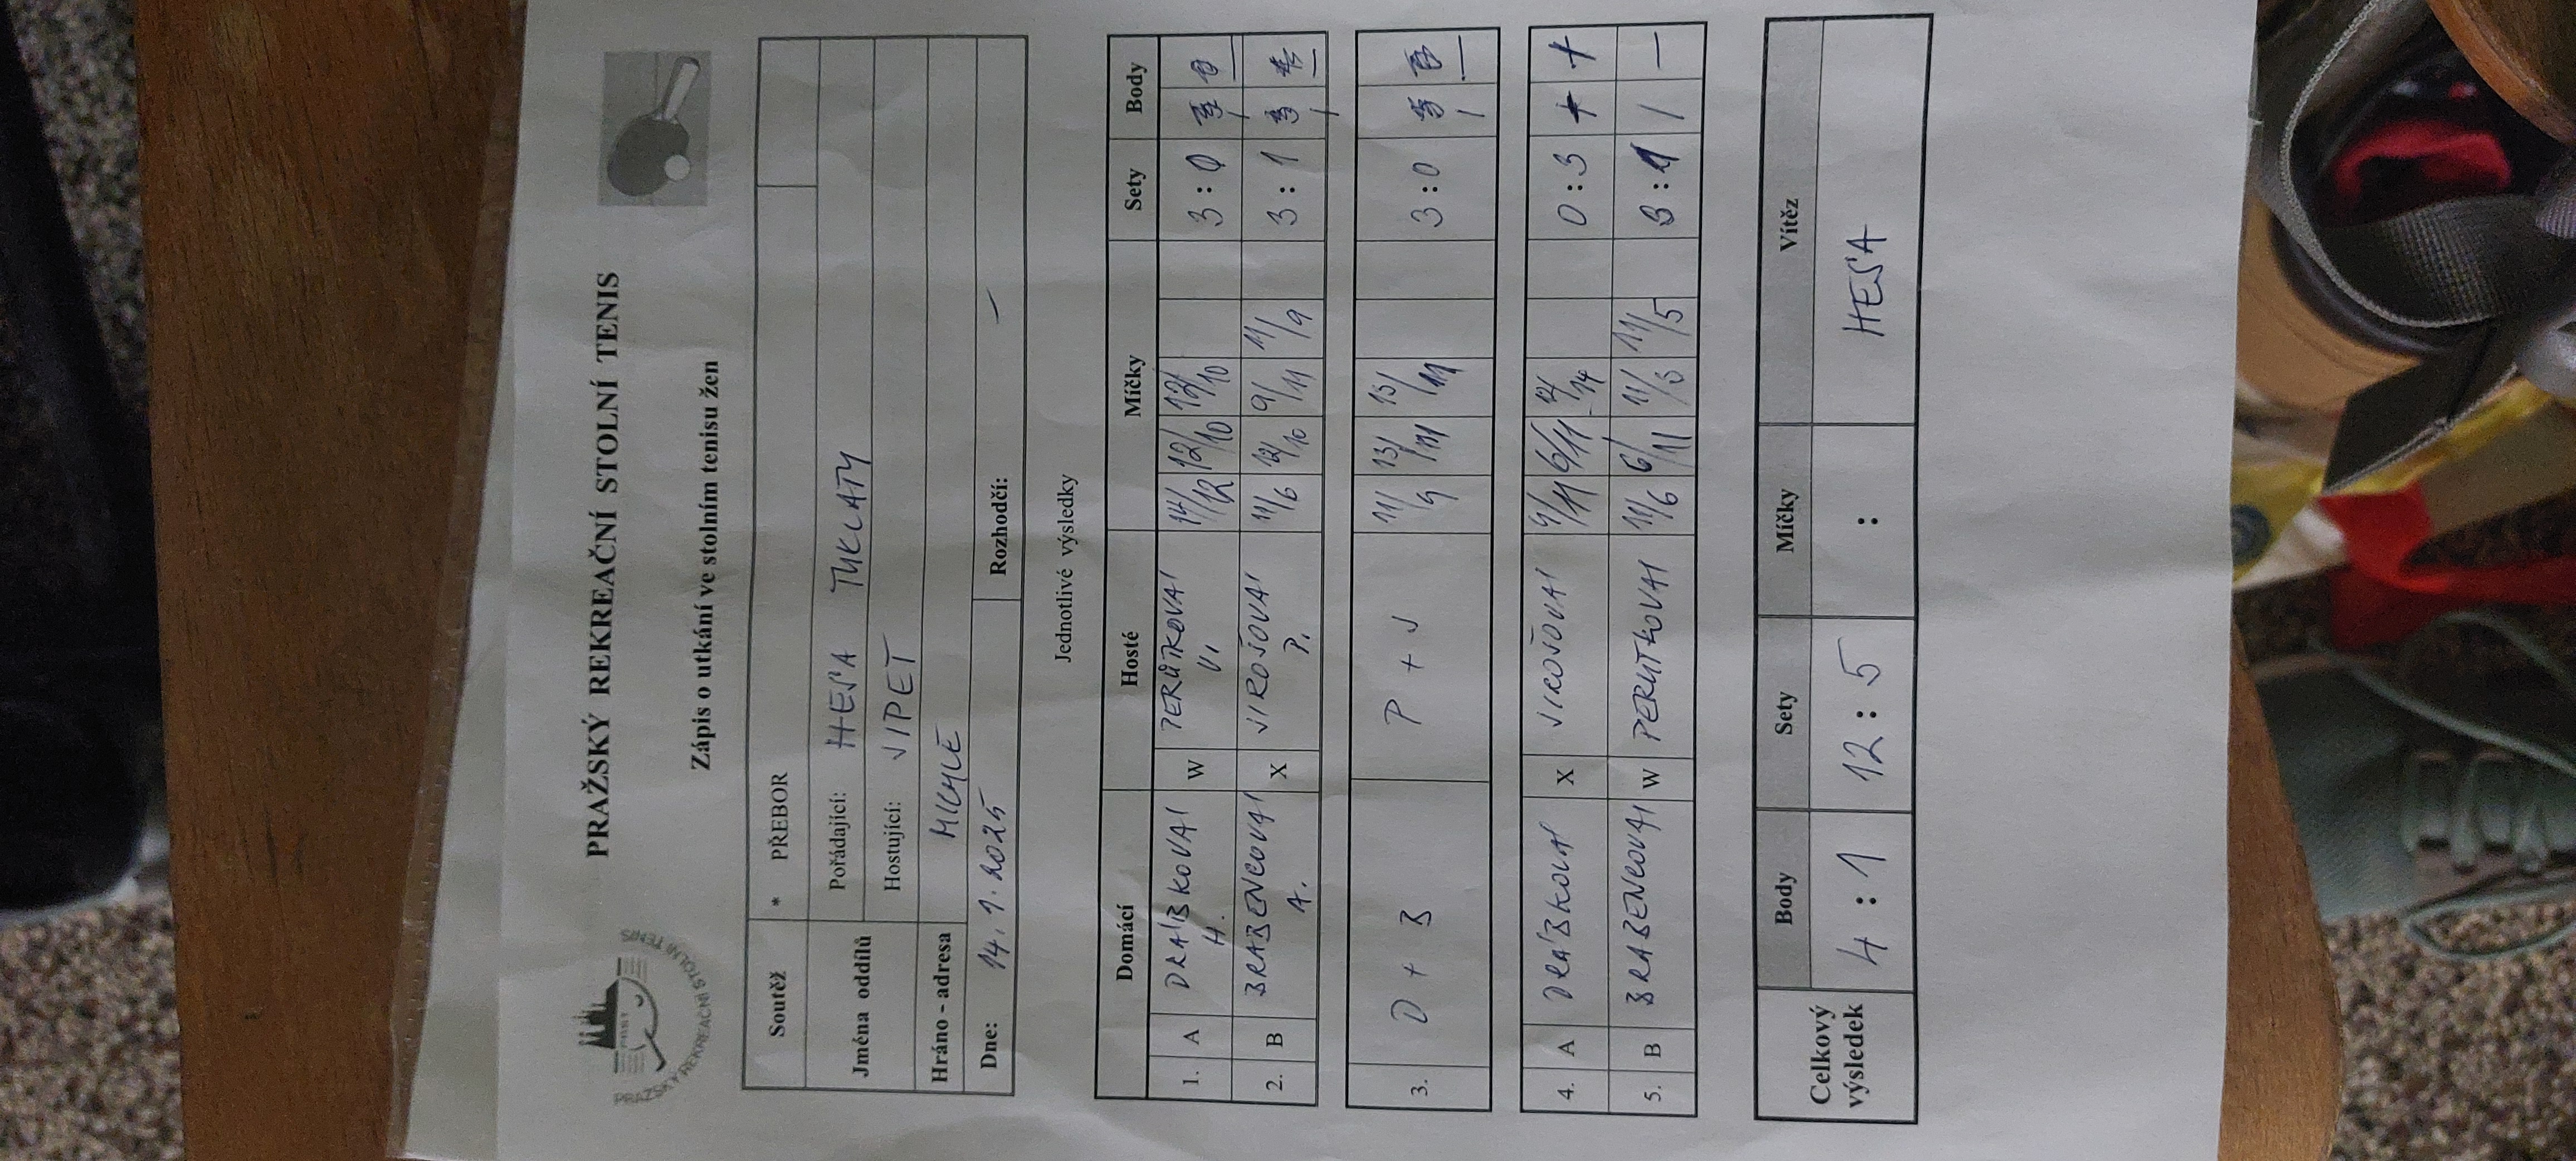 PRAŽSKÝ REKREAČNÍ STOLNÍ TENIS
Zápis o utkání ve stolním tenisu žen
Soutěž * PŘEBOR
Jména oddílů Pořádající: HESA TUKLATY
Hostující: VIPET
Hráno - adresa MICHLE
Dne: 14.1.2025 Rozhodčí: —
Jednotlivé výsledky
Domácí Hosté Míčky Sety Body
1. A DRÁBKOVÁ H. W PERŮTKOVÁ V. 14/12 12/10 12/10 3:0
2. B BRABENCOVÁ A. X JIROŠOVÁ P. 11/6 12/10 9/11 11/9 3:1
3. D + B P + J 11/9 13/11 13/11 3:0
4. A DRÁBKOVÁ X JIROŠOVÁ 9/11 6/11 12/14 0:3
5. B BRABENCOVÁ W PERUTKOVÁ 11/6 6/11 11/3 11/5 3:1 | —
Celkový výsledek Body Sety Míčky Vítěz
4:1 12:5 : HESA